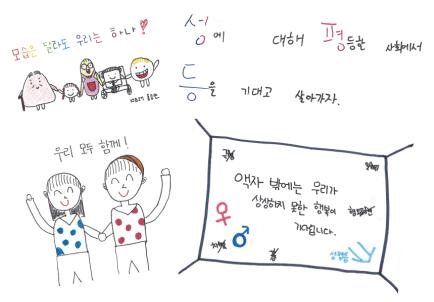 모습은 달라도 우리는 하나!
성에 대해 평등한 사회에서
등을 기대고 살아가자.
우리 모두 함께!
액자 밖에는 우리가
상상하지 못한 행복이
기다립니다.